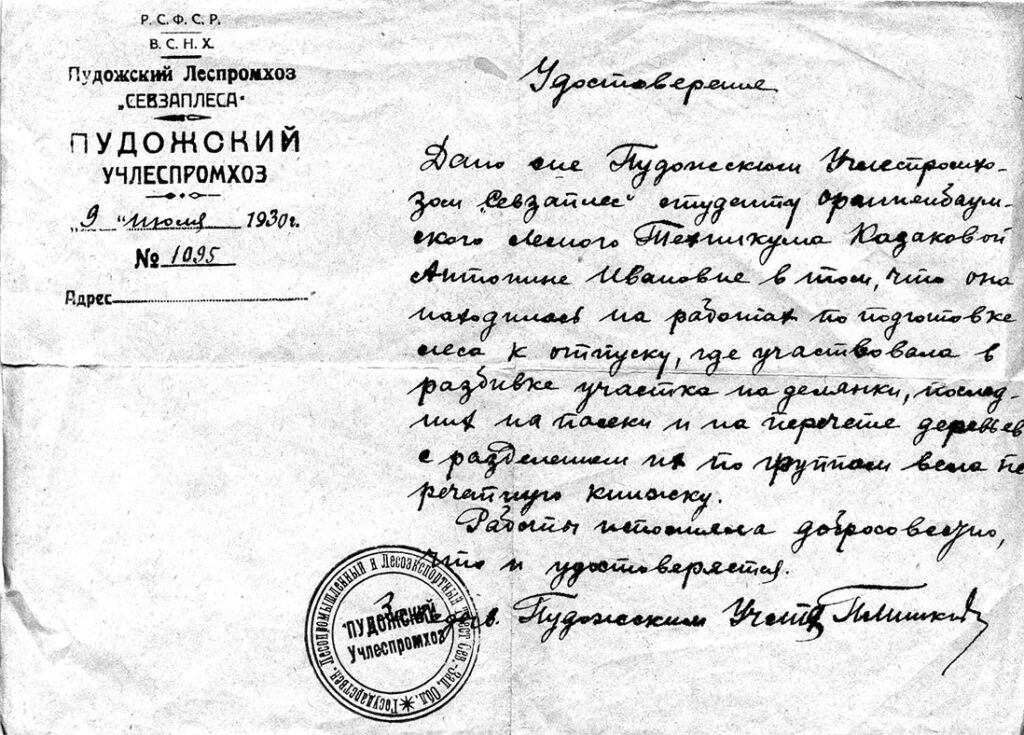 Р. С. Ф. С. Р.
В. С. Н. Х.
Пудожский Леспромхоз
„СЕВЗАПЛЕСА"
ПУДОЖСКИЙ
УЧЛЕСПРОМХОЗ
„ 9 " июля 1930 г.
№ 1095
Адрес
Удостоверение
Дано сие Пудожским Учлеспромхо-
зом „Севзаплес" студенту Ораниенбаум-
ского Лесного Техникума Казаковой
Антонине Ивановне в том, что она
находилась на работах по подготовке
леса к отпуску, где участвовала в
разбивке участка на делянки, послед-
них на пасеки и на перечете деревьев
с разделением их по группам вела пе
речетную книжку.
Работы исполняла добросовестно,
что и удостоверяется.
Зав. Пудожским
Государствен. Лесопромышленный и Лесоэкспортный Трест Сев.-Зап. Обл.
"ПУДОЖСКИЙ
Учлеспромхоз"